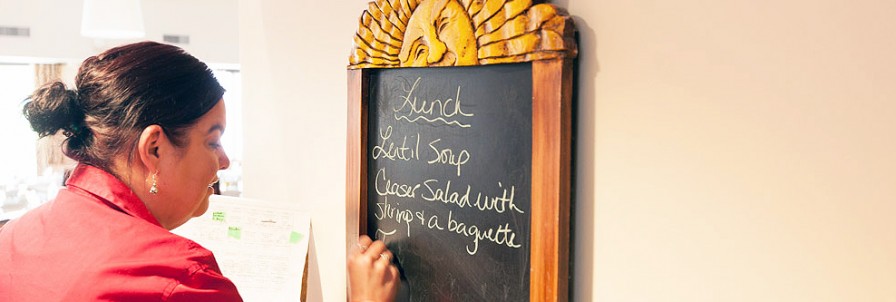 Lunch
Lentil Soup
Ceaser Salad with
shrimp & a baguette